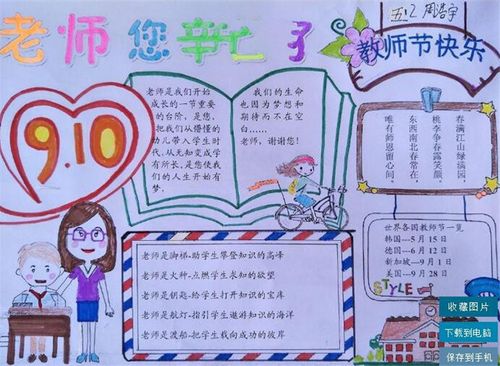 五:2 周浩宇
老师您辛苦了
教师节快乐
9.10
老师是我们开始
成长的一节重要
的台阶，是您，
把我们从懵懂的
幼儿带入学生时
代，从无知变成学
有所长，是您使我
们的人生开始有
梦。
我们的生命
也因为梦想和
期待而不在空
白……
老师，谢谢您！
春满江山绿满园，
桃李争春露笑颜。
东西南北春常在，
唯有师恩留心间。
老师是脚梯-助学生攀登知识的高峰
老师是火种-点燃学生求知的欲望
老师是钥匙-给学生打开知识的宝库
老师是航灯-指引学生遨游知识的海洋
老师是渡船-把学生载向成功的彼岸
世界各国教师节一览
韩国—5月15日
德国—6月12日
新加坡—9月1日
美国—9月28日
STYLE
收藏图片
下载到电脑
保存到手机